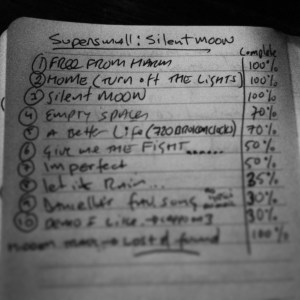 Supersmall: Silent Moon
Complete
1 FREE FROM HARM 100%
2 HOME (Turn off THE LIGHTS) 100%
3 Silent MOON 100%
4 EMPTY SPACES 70%
5 A Better Life 70%
6 GIVE ME THE FIGHT...... 50%
7 Imperfect 50%
8 let it Rain... 35%
9 song 30%
10 30%
Lost & found 100%